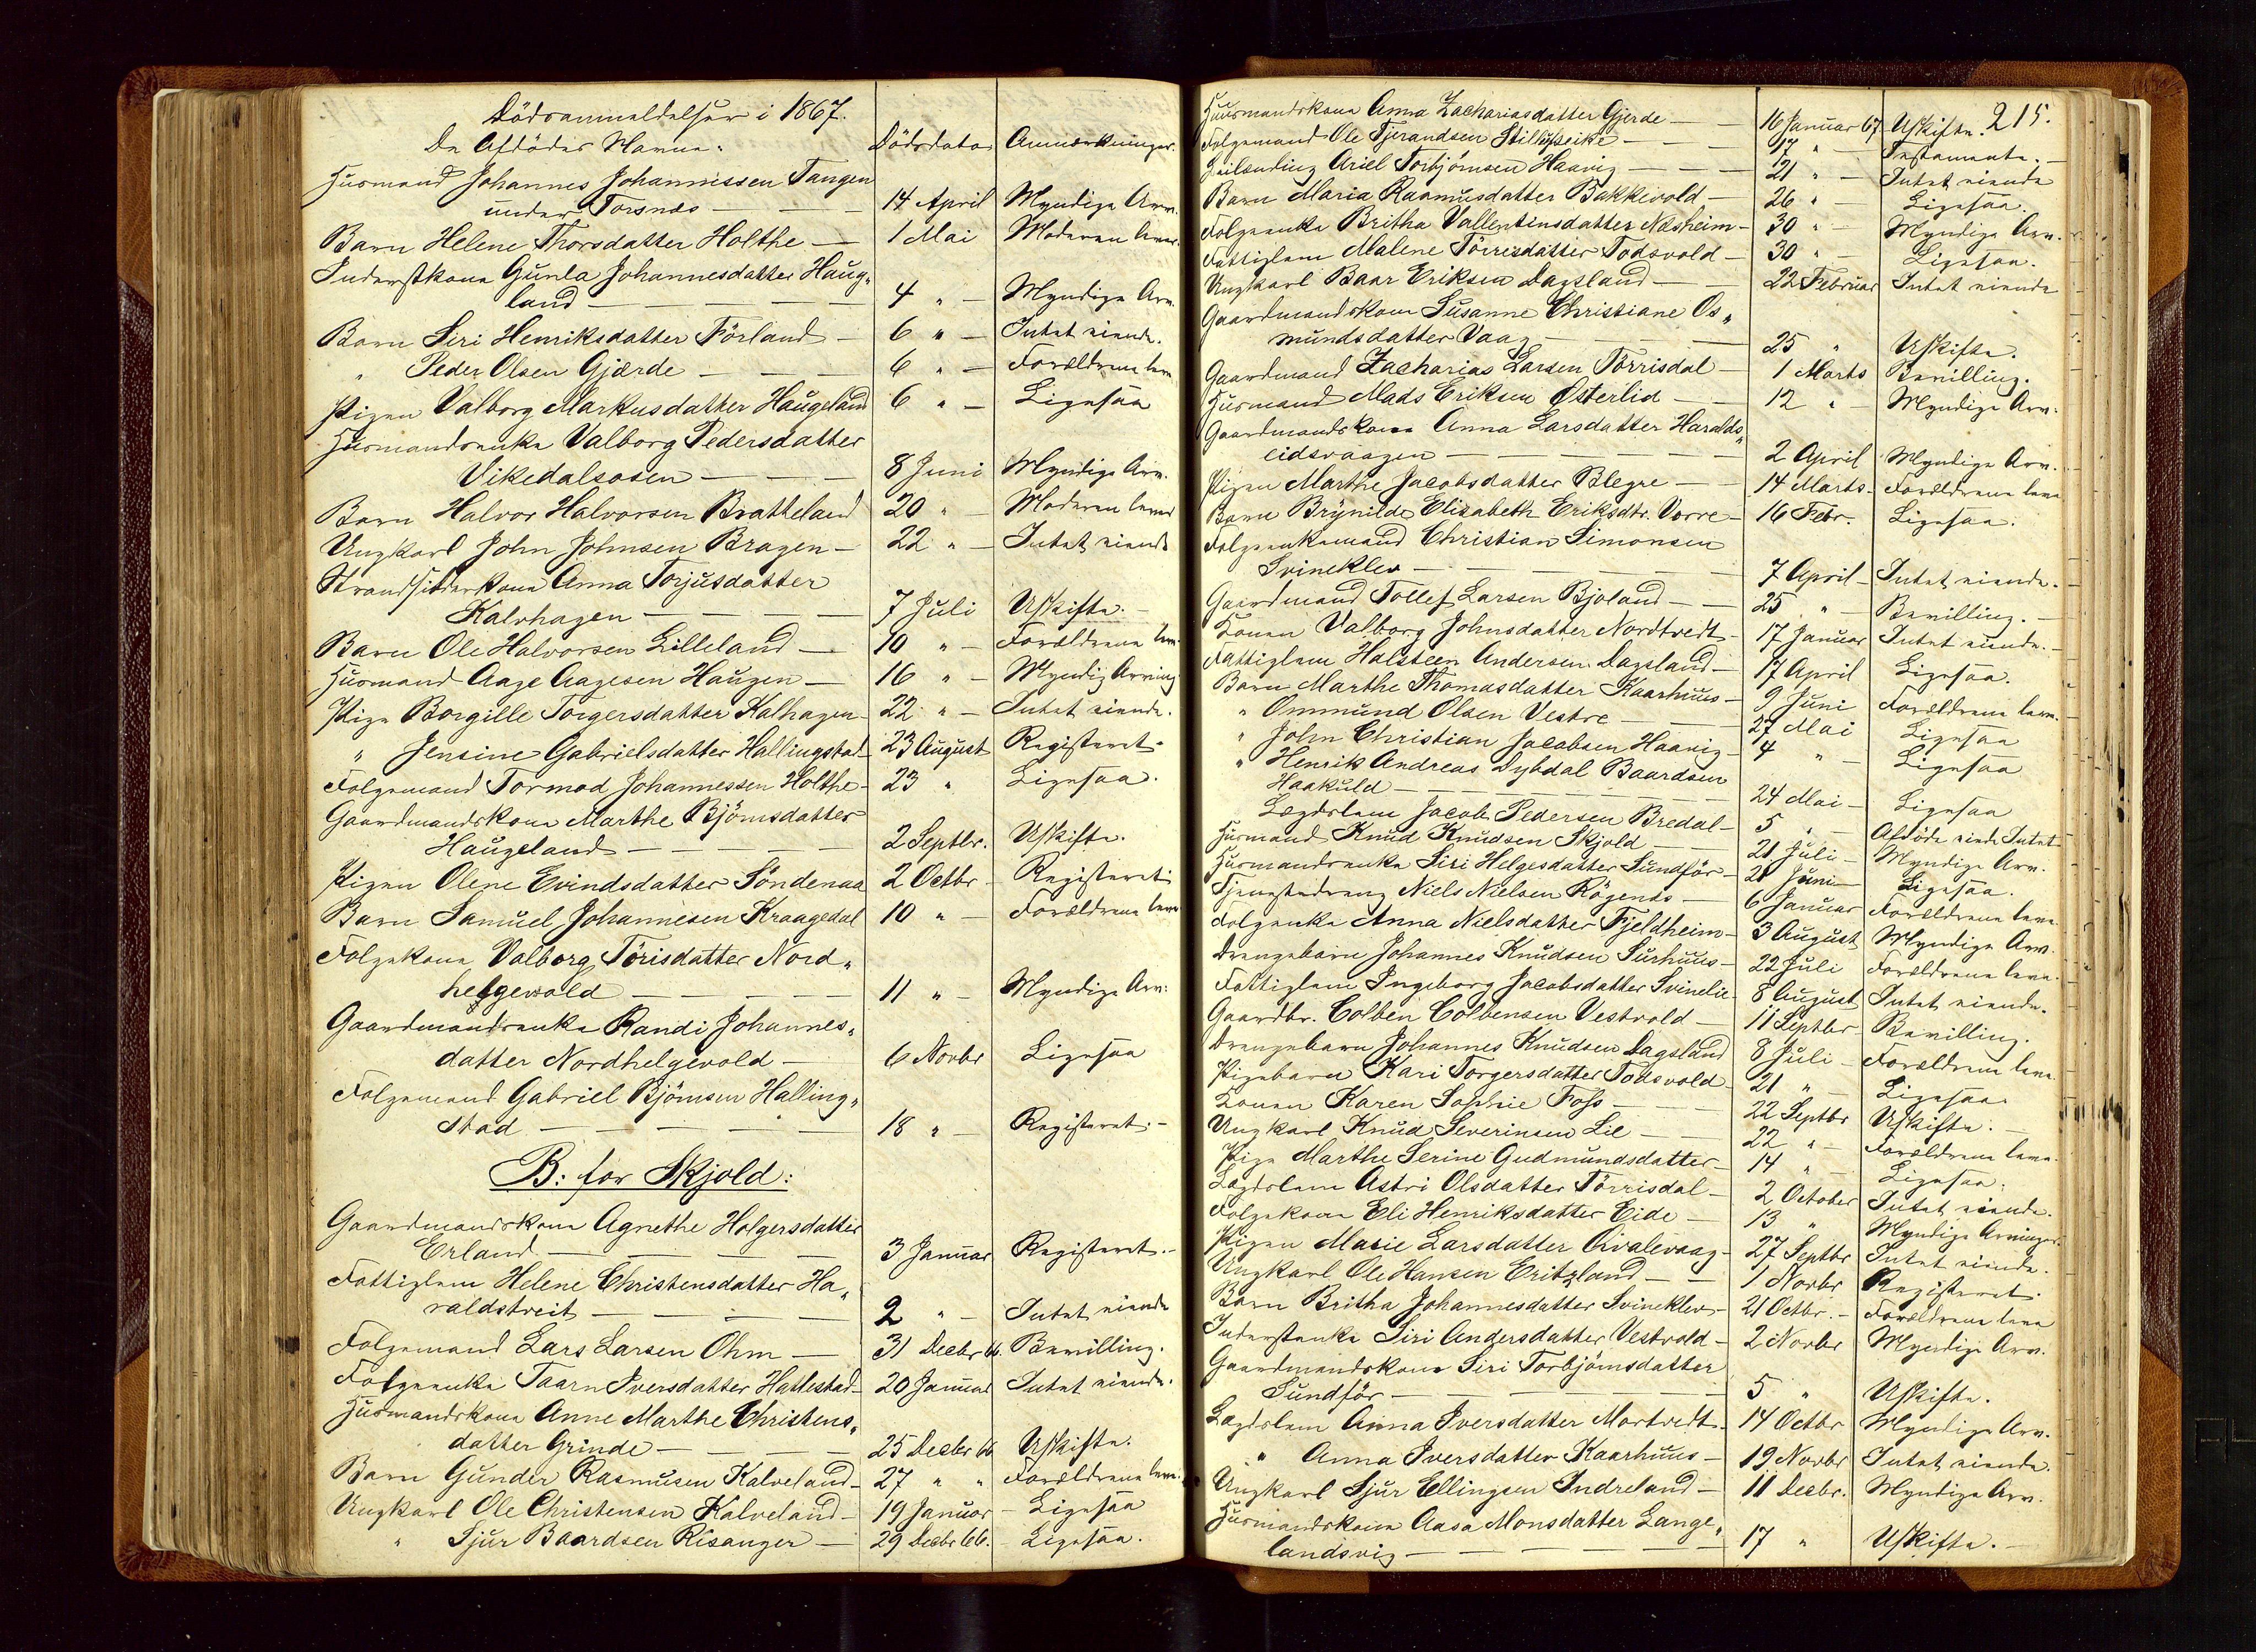 Dödsanmeldelser i 1867.
De Afdödes Navne. Dödsdato Anmærkninger.
Huusmand Johannes Johannessen Tangen
under Torsnæs — 14 April Myndige Arv.
Barn Helene Thorsdatter Holthe — 1 Mai Moderen lever.
Inderstkone Gunla Johannesdatter Haug„
land — 4 „ — Myndige Arv.
Barn Siri Henriksdatter Förland — 6 „ — Intet eiende.
„ Peder Olsen Gjærde — 6 „ — Forældrene leve
Pigen Valborg Markusdatter Haugeland 6 „ — Ligesaa
Huusmandsenke Valborg Pedersdatter
Vikedalsosen — 8 Juni Myndige Arv.
Barn Halvor Halvorsen Bratheland 20 „ — Moderen lever
Ungkarl John Johnsen Bragen — 22 „ — Intet eiende
Strandsidderkone Anna Torjusdatter
Kalvhagen — 7 Juli Uskifte. —
Barn Ole Halvorsen Lilleland — 10 „ — Forældrene leve.
Huusmand Aage Aagesen Haugen — 16 „ — Myndig Arving
Pige Borgille Torgersdatter Kalhagen — 22 „ — Intet eiende.
„ Jensine Gabrielsdatter Hallingstad — 23 August Registeret.
Folgemand Tormod Johannessen Holthe — 23 „ Ligesaa.
Gaardmandskone Marthe Björnsdatter
Haugeland — 2 Septbr. Uskifte.
Pigen Olene Evindsdatter Söndenaa 2 Octbr — Registeret
Barn Samuel Johannesen Kraagedal 10 „ — Forældrene leve
Folgekone Valborg Törisdatter Nord„
helgevold — 11 „ — Myndige Arv:
Gaardmandsenke Randi Johannes„
datter Nordhelgevold — 6 Novbr Ligesaa
Folgemand Gabriel Björnsen Halling„
stad — 18 „ — Registeret. —
B: for Skjold:
Gaardmandskone Agnethe Holgersdatter
Erland — 3 Januar Registeret. —
Fattiglem Helene Christensdatter Ha„
raldstveit — 2 „ — Intet eiende
Folgemand Lars Larsen Ohm — 31 Decbr 66. Bevilling.
Folgeenke Taarn Iversdatter Hatlestad — 20 Januar Intet eiende.
Huusmandskone Anne Marthe Christens„
datter Grinde — 25 Decbr 66 Uskifte.
Barn Gunder Rasmusen Kalveland — 27 „ „ Forældrene leve.
Ungkarl Ole Christensen Kalveland — 19 Januar — Ligesaa
„ Sjur Baardsen Risanger — 29 Decbr 66. — Ligesaa.
215.
Huusmandskone Anna Zachariasdatter Gjerde — 16 Januar 67 Uskifte.
Folgemand Ole Tjerandsen — 17 „ — Testamente. —
Ariel Torbjörnsen Haavig — 21 „ — Intet eiende
Barn Maria Rasmusdatter Bakkevold — 26 „ — Ligesaa.
Folgeenke Britha Vallentinsdatter Næsheim — 30 „ — Myndige Arv.
Fattiglem Malene Törresdatter Todsvold — 30 „ — Ligesaa.
Ungkarl Baar Eriksen Dagsland — 22 Februar Intet eiende
Gaardmandskone Susanne Christiane Os„
mundsdatter Vaag — 25 „ Uskifte.
Gaardmand Zacharias Larsen Törrisdal — 1 Marts Bevilling.
Huusmand Mads Eriksen Østerlid — 12 „ — Myndige Arv.
Gaardmandskone Anna Larsdatter Haralds„
eidsvaagen — 2 April Myndige Arv.
Pigen Marthe Jacobsdatter Blegre — 14 Marts. Forældrene leve
Barn Brynilde Elisabeth Eriksdtr. Vorre — 16 Febr. Ligesaa.
Folgeenkemand Christian Simonsen
Svineklev — 7 April — Intet eiende. —
Gaardmand Tollef Larsen Bjoland — 25 „ — Bevilling. —
Konen Valborg Johnsdatter Nordtvedt — 17 Januar Intet eiende. —
Fattiglem Halsteen Andersen Dagsland — 17 April Ligesaa.
Barn Marthe Thomasdatter Kaarhuus — 9 Juni Forældrene leve.
„ Ommund Olsen Vestre — 27 Mai Ligesaa
„ John Christian Jacobsen Haavig — 4 „ — Ligesaa
„ Henrik Andreas Dybdal Baardsen
Haakuld — 24 Mai — Ligesaa
Lægdslem Jacob Pedersen Bredal — 5 „ — Afdöde eiede Intet
Huusmand Knud Knudsen Skjold — 21 Juli — Myndige Arv.
Huusmandsenke Siri Helgesdatter Sundför — 21 Juni — Ligesaa.
Tjenestedreng Niels Nielsen Rögenæs — 6 Januar Forældrene leve
Folgeenke Anna Nielsdatter Fjeldheim — 3 August Myndige Arv.
Drengebarn Johannes Knudsen Surhuus — 22 Juli Forældrene leve.
Fattiglem Ingeborg Jacobsdatter Svinelie — 8 August Intet eiende.
Gaardbr. Colben Colbensen Vestvold — 11 Septbr Bevilling.
Drengebarn Johannes Knudsen Dagsland 8 Juli — Forældrene leve
Pigebarn Kari Torgersdatter Todsvold — 21 „ — Ligesaa
Konen Karen Sophie Foss — 22 Septbr Uskifte. —
Ungkarl Knud Severinsen Lie — 22 „ — Forældrene leve.
Pige Marthe Serine Gudmundsdatter — 14 „ — Ligesaa.
Lægdslem Astri Olsdatter Törrisdal — 2 October Intet eiende.
Folgekone Eli Henriksdatter Eide — 13 „ Myndige Arvinger.
Pigen Marie Larsdatter — 27 Septbr Intet eiende.
Ungkarl Ole Hansen Eritzland — 1 Novbr Registeret.
Barn Britha Johannesdatter Svineklev — 21 Octbr. — Forældrene leve
Inderstenke Siri Andersdatter Vestvold — 2 Novbr Myndige Arv.
Gaardmandskone Siri Torbjörnsdatter
Sundför — 5 „ Uskifte.
Lægdslem Anna Iversdatter Mortvedt — 14 Octbr Myndige Arv.
„ Anna Iversdatter Kaarhuus — 19 Novbr Intet eiende.
Ungkarl Sjur Ellingsen Indreland — 11 Decbr. Myndige Arv.
Huusmandskone Aasa Monsdatter Lange„
landsvig — 17 „ Uskifte. —